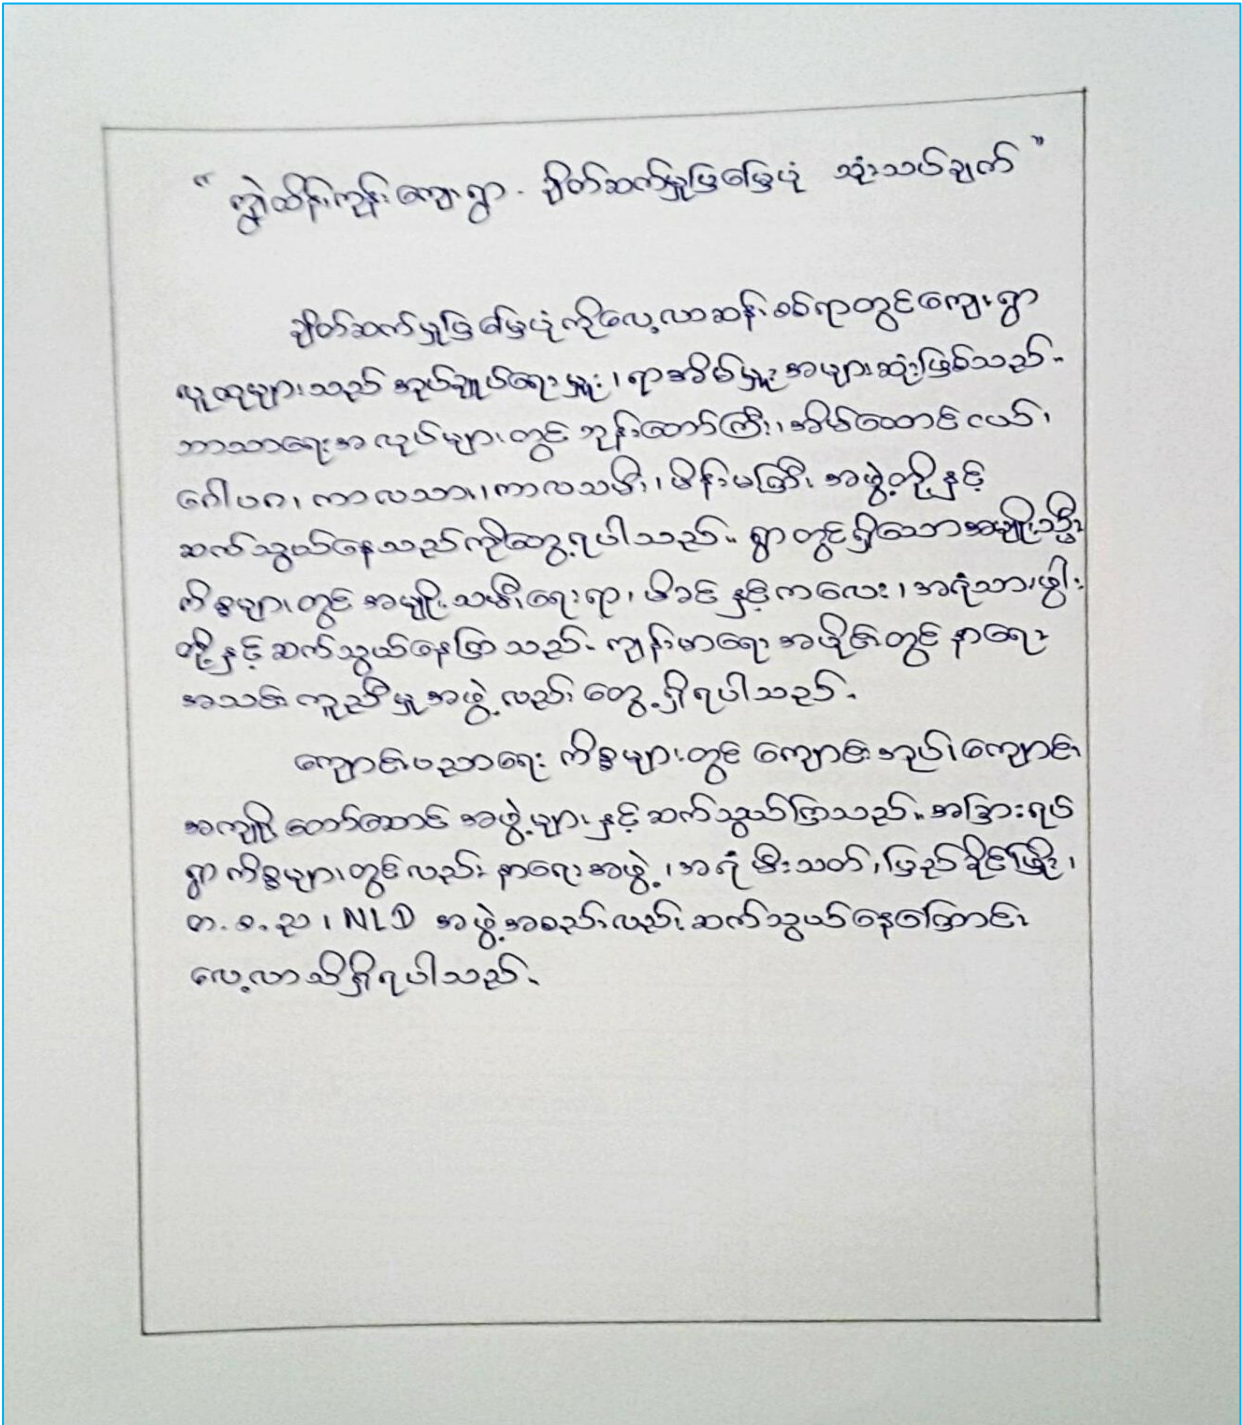 " ကျွဲထိန်းကုန်း ကျေးရွာ - ချိတ်ဆက်မှုပြမြေပုံ သုံးသပ်ချက် "
ချိတ်ဆက်မှုပြမြေပုံကိုလေ့လာဆန်းစစ်ရာတွင်ကျေးရွာ
လူထုများသည် အုပ်ချုပ်ရေးမှူး၊ ရာအိမ်မှူး အများဆုံးဖြစ်သည်။
ဘာသာရေးအလုပ်များတွင် ဘုန်းတော်ကြီး၊ အိမ်ထောင်ငယ်၊
ဂေါပက၊ ကာလသား၊ ကာလသမီး၊ မိန်းမကြီး အဖွဲ့တို့နှင့်
ဆက်သွယ်နေသည်ကိုတွေ့ရပါသည်။ ရွာတွင်ရှိသောအမျိုးသမီး
ကိစ္စများတွင် အမျိုးသမီးရေးရာ၊ မိခင်နှင့်ကလေး၊ အရံသားဖွါး
တို့နှင့်ဆက်သွယ်နေကြသည်။ ကျန်းမာရေး အပိုင်းတွင် နာရေး
အသင်း ကူညီမှုအဖွဲ့လည်း တွေ့ရှိရပါသည်။
ကျောင်းပညာရေး ကိစ္စများတွင် ကျောင်းအုပ်၊ ကျောင်း
အကျိုးတော်ဆောင် အဖွဲ့များနှင့်ဆက်သွယ်ကြသည်။ အခြားရပ်
ရွာကိစ္စများတွင်လည်း နာရေးအဖွဲ့၊ အရံမီးသတ်၊ ပြည်ခိုင်ဖြိုး၊
တ.စ.ည၊ NLD အဖွဲ့အစည်းလည်း ဆက်သွယ်နေကြောင်း
လေ့လာသိရှိရပါသည်။